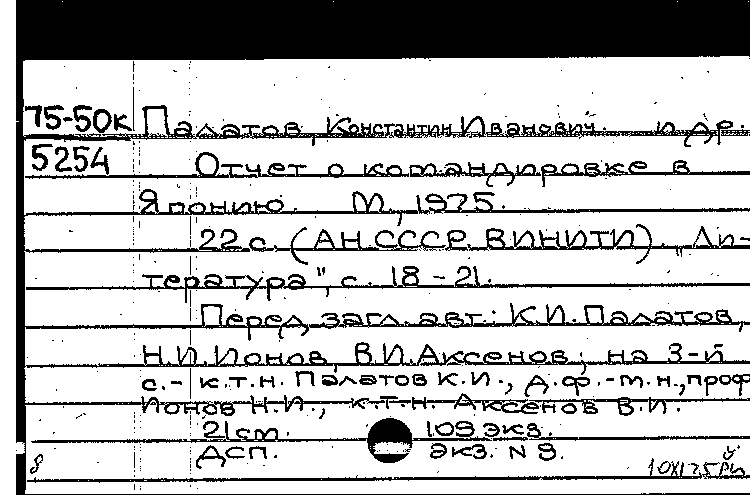 75-50к Палатов, Константин Иванович. и др.
5254 Отчет о командировке в
Японию. М., 1975.
22 с. (АН СССР. ВИНИТИ). "Ли-
тература", с. 18-21.
Перед загл. авт.: К.И. Палатов,
Н.И. Ионов, В.И. Аксенов; на 3-й
с.- к.т.н. Палатов К.И., д.ф.-м.н., проф
Ионов Н.И., к.т.н. Аксенов В.И.
21 см. 109 экз.
ДСП. экз. N 9.
8